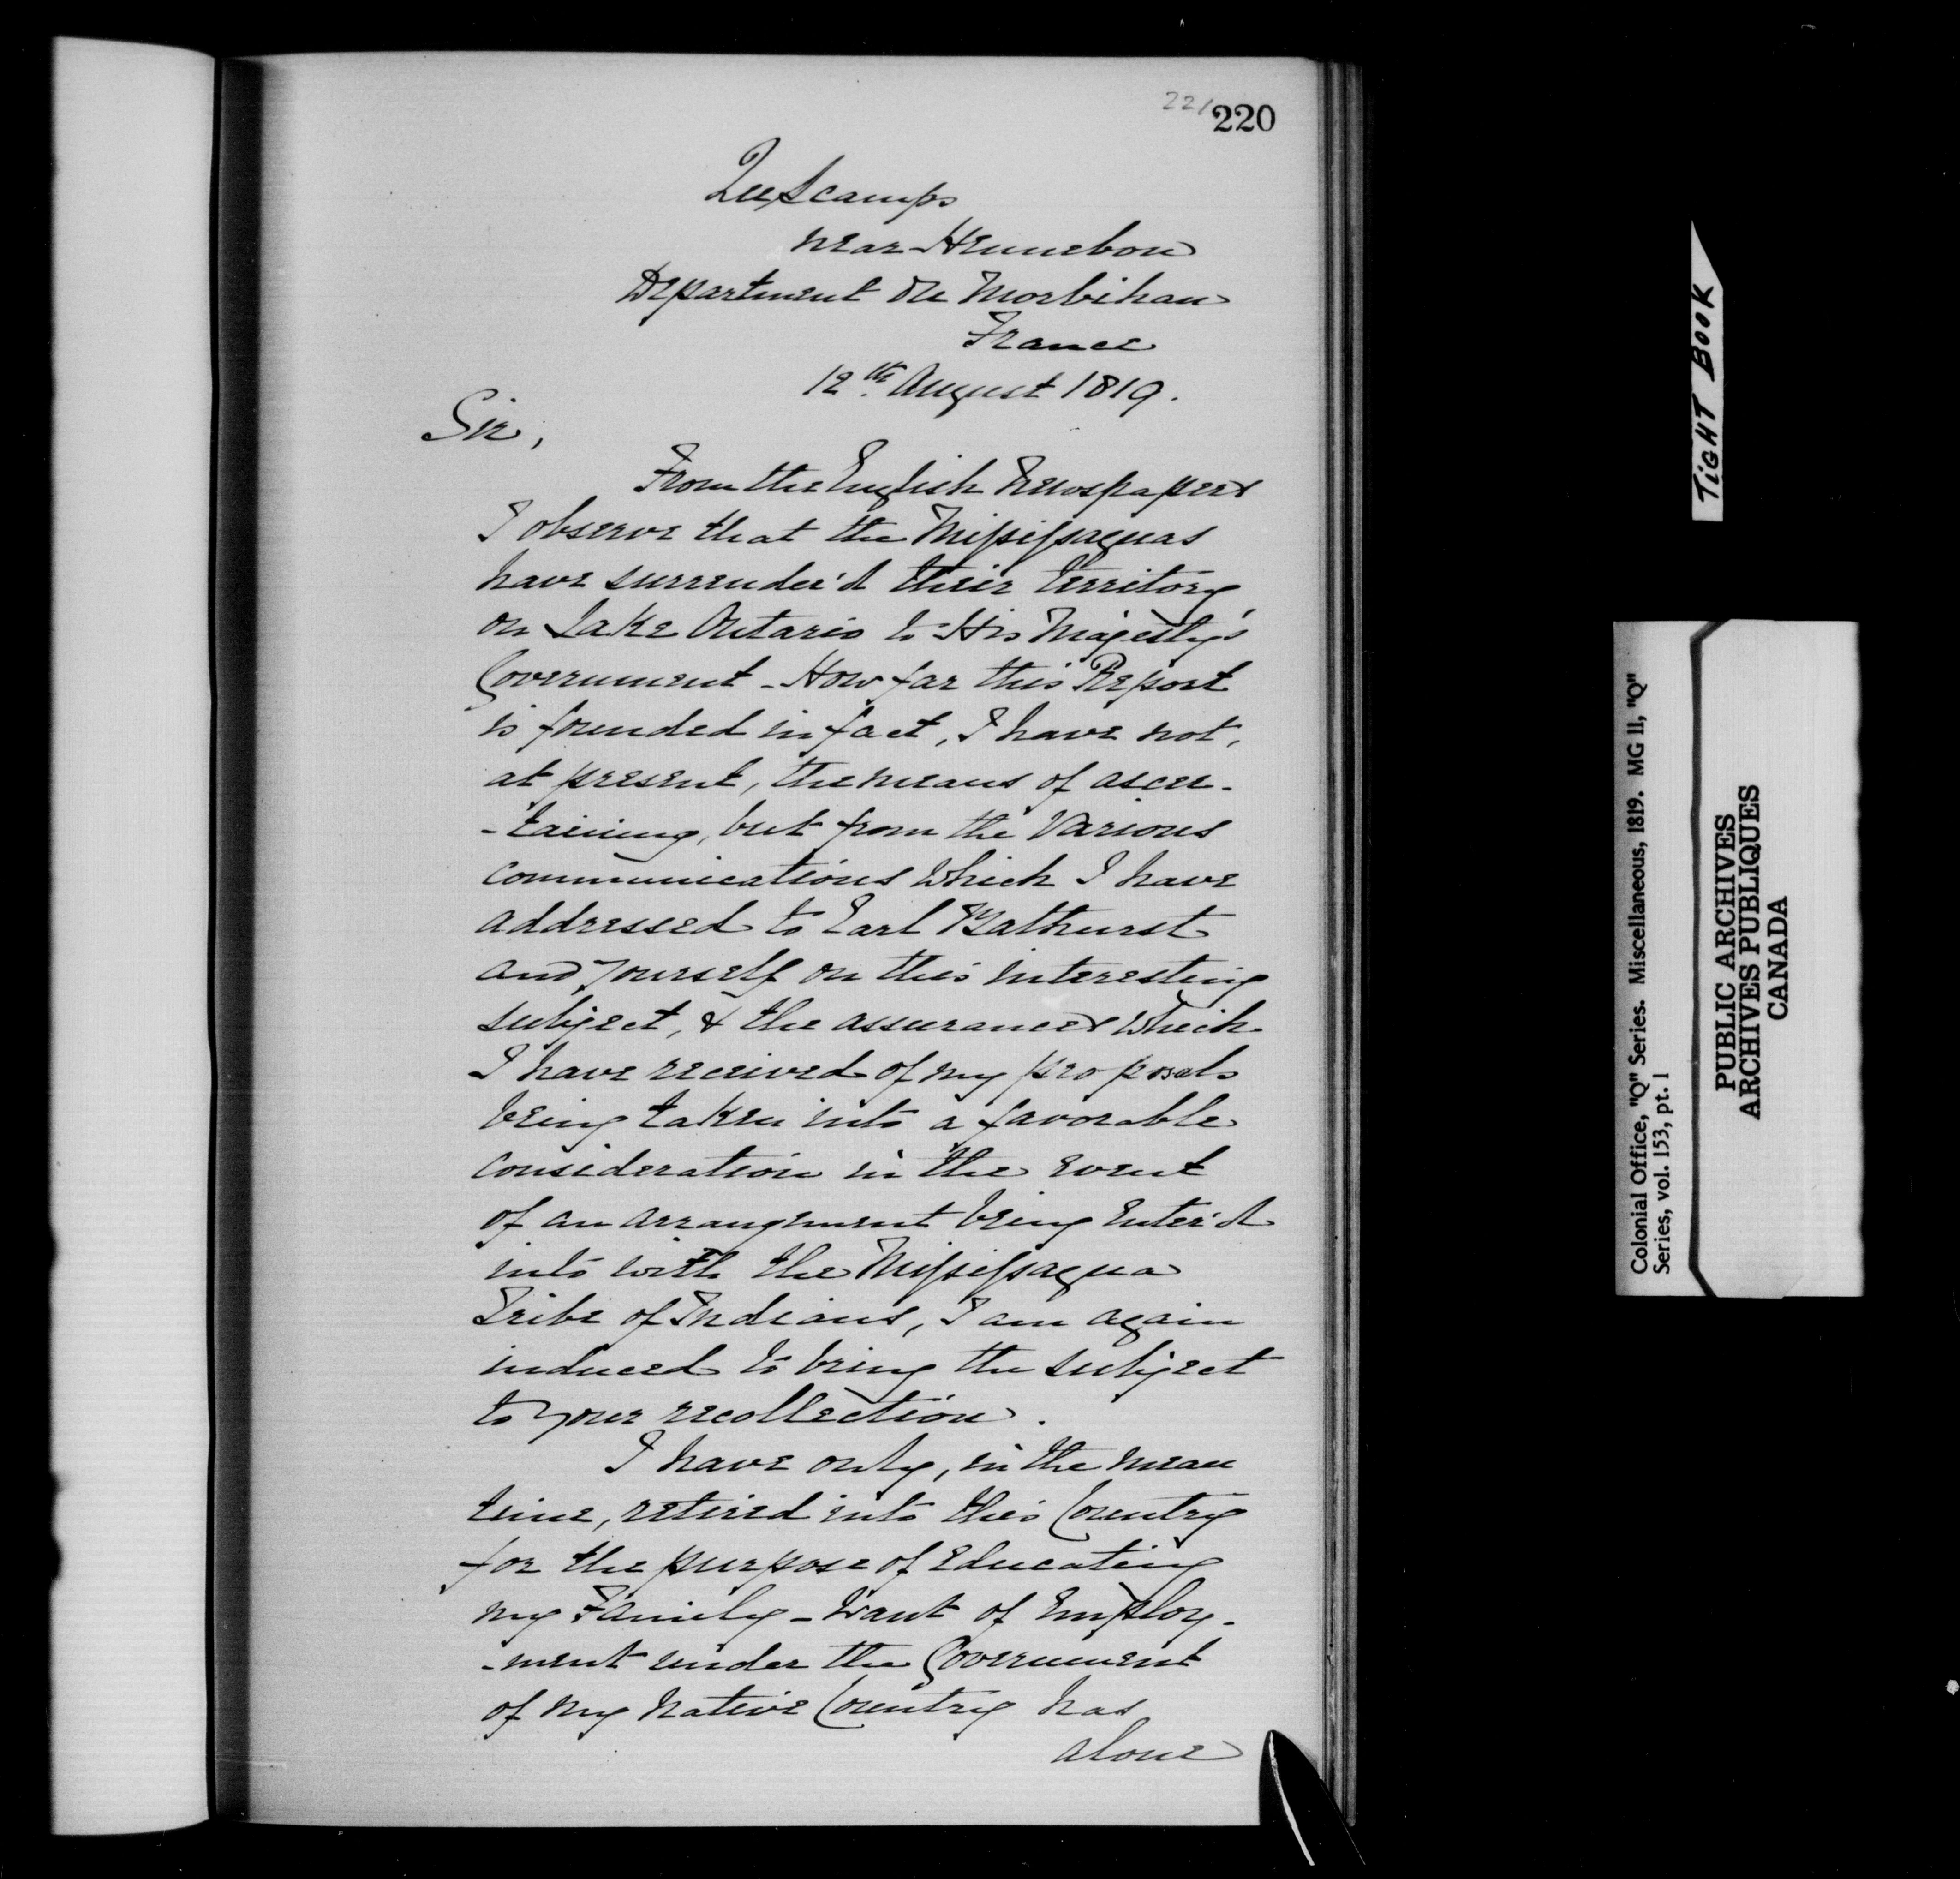 221 220
near Hennebon
Department De Morbihan
France
12th. August 1819.
Sir,
From the English Newspapers
I observe that the Missisaguas
have surrender'd their Territory
on Lake Ontario to His Majesty's
Government - How far this Report
is founded in fact, I have not,
at present, the means of ascer-
-taining, but from the various
communications which I have
addressed to Earl Bathurst
and yourself on this interesting
subject, & the assurances which
I have received of my proposals
being taken into a favorable
consideration in the event
of an arrangement being enter'd
into with the Missisagua
Tribe of Indians, I am again
induced to bring the subject
to your recollection.
I have only, in the mean
time, retired into this Country
for the purpose of educating
my Family - Want of Employ-
-ment under the Government
of my native Country has
alone
TIGHT BOOK
Colonial Office, "Q" Series. Miscellaneous, 1819. MG 11, "Q"
Series, vol. 153, pt. 1
PUBLIC ARCHIVES
ARCHIVES PUBLIQUES
CANADA